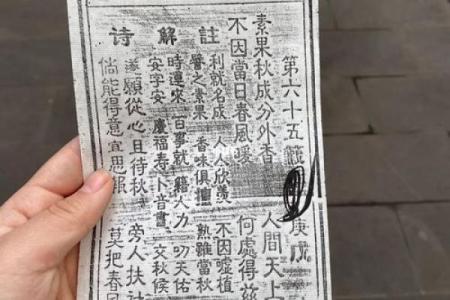 第六十五籤 庚戌
素果秋成分外香 人間天上
不因當日春風暖 何處得
註解詩
利就名成 人人欣羨 不因噓植
譽之素果 香味俱擅 熟雖當秋
時運來 百事就 籍人力 叨天佑
安字安 慶福壽 卜音書 交秋候
遂願從心且待秋 旁人扶
倘能得意宜思報 莫把春